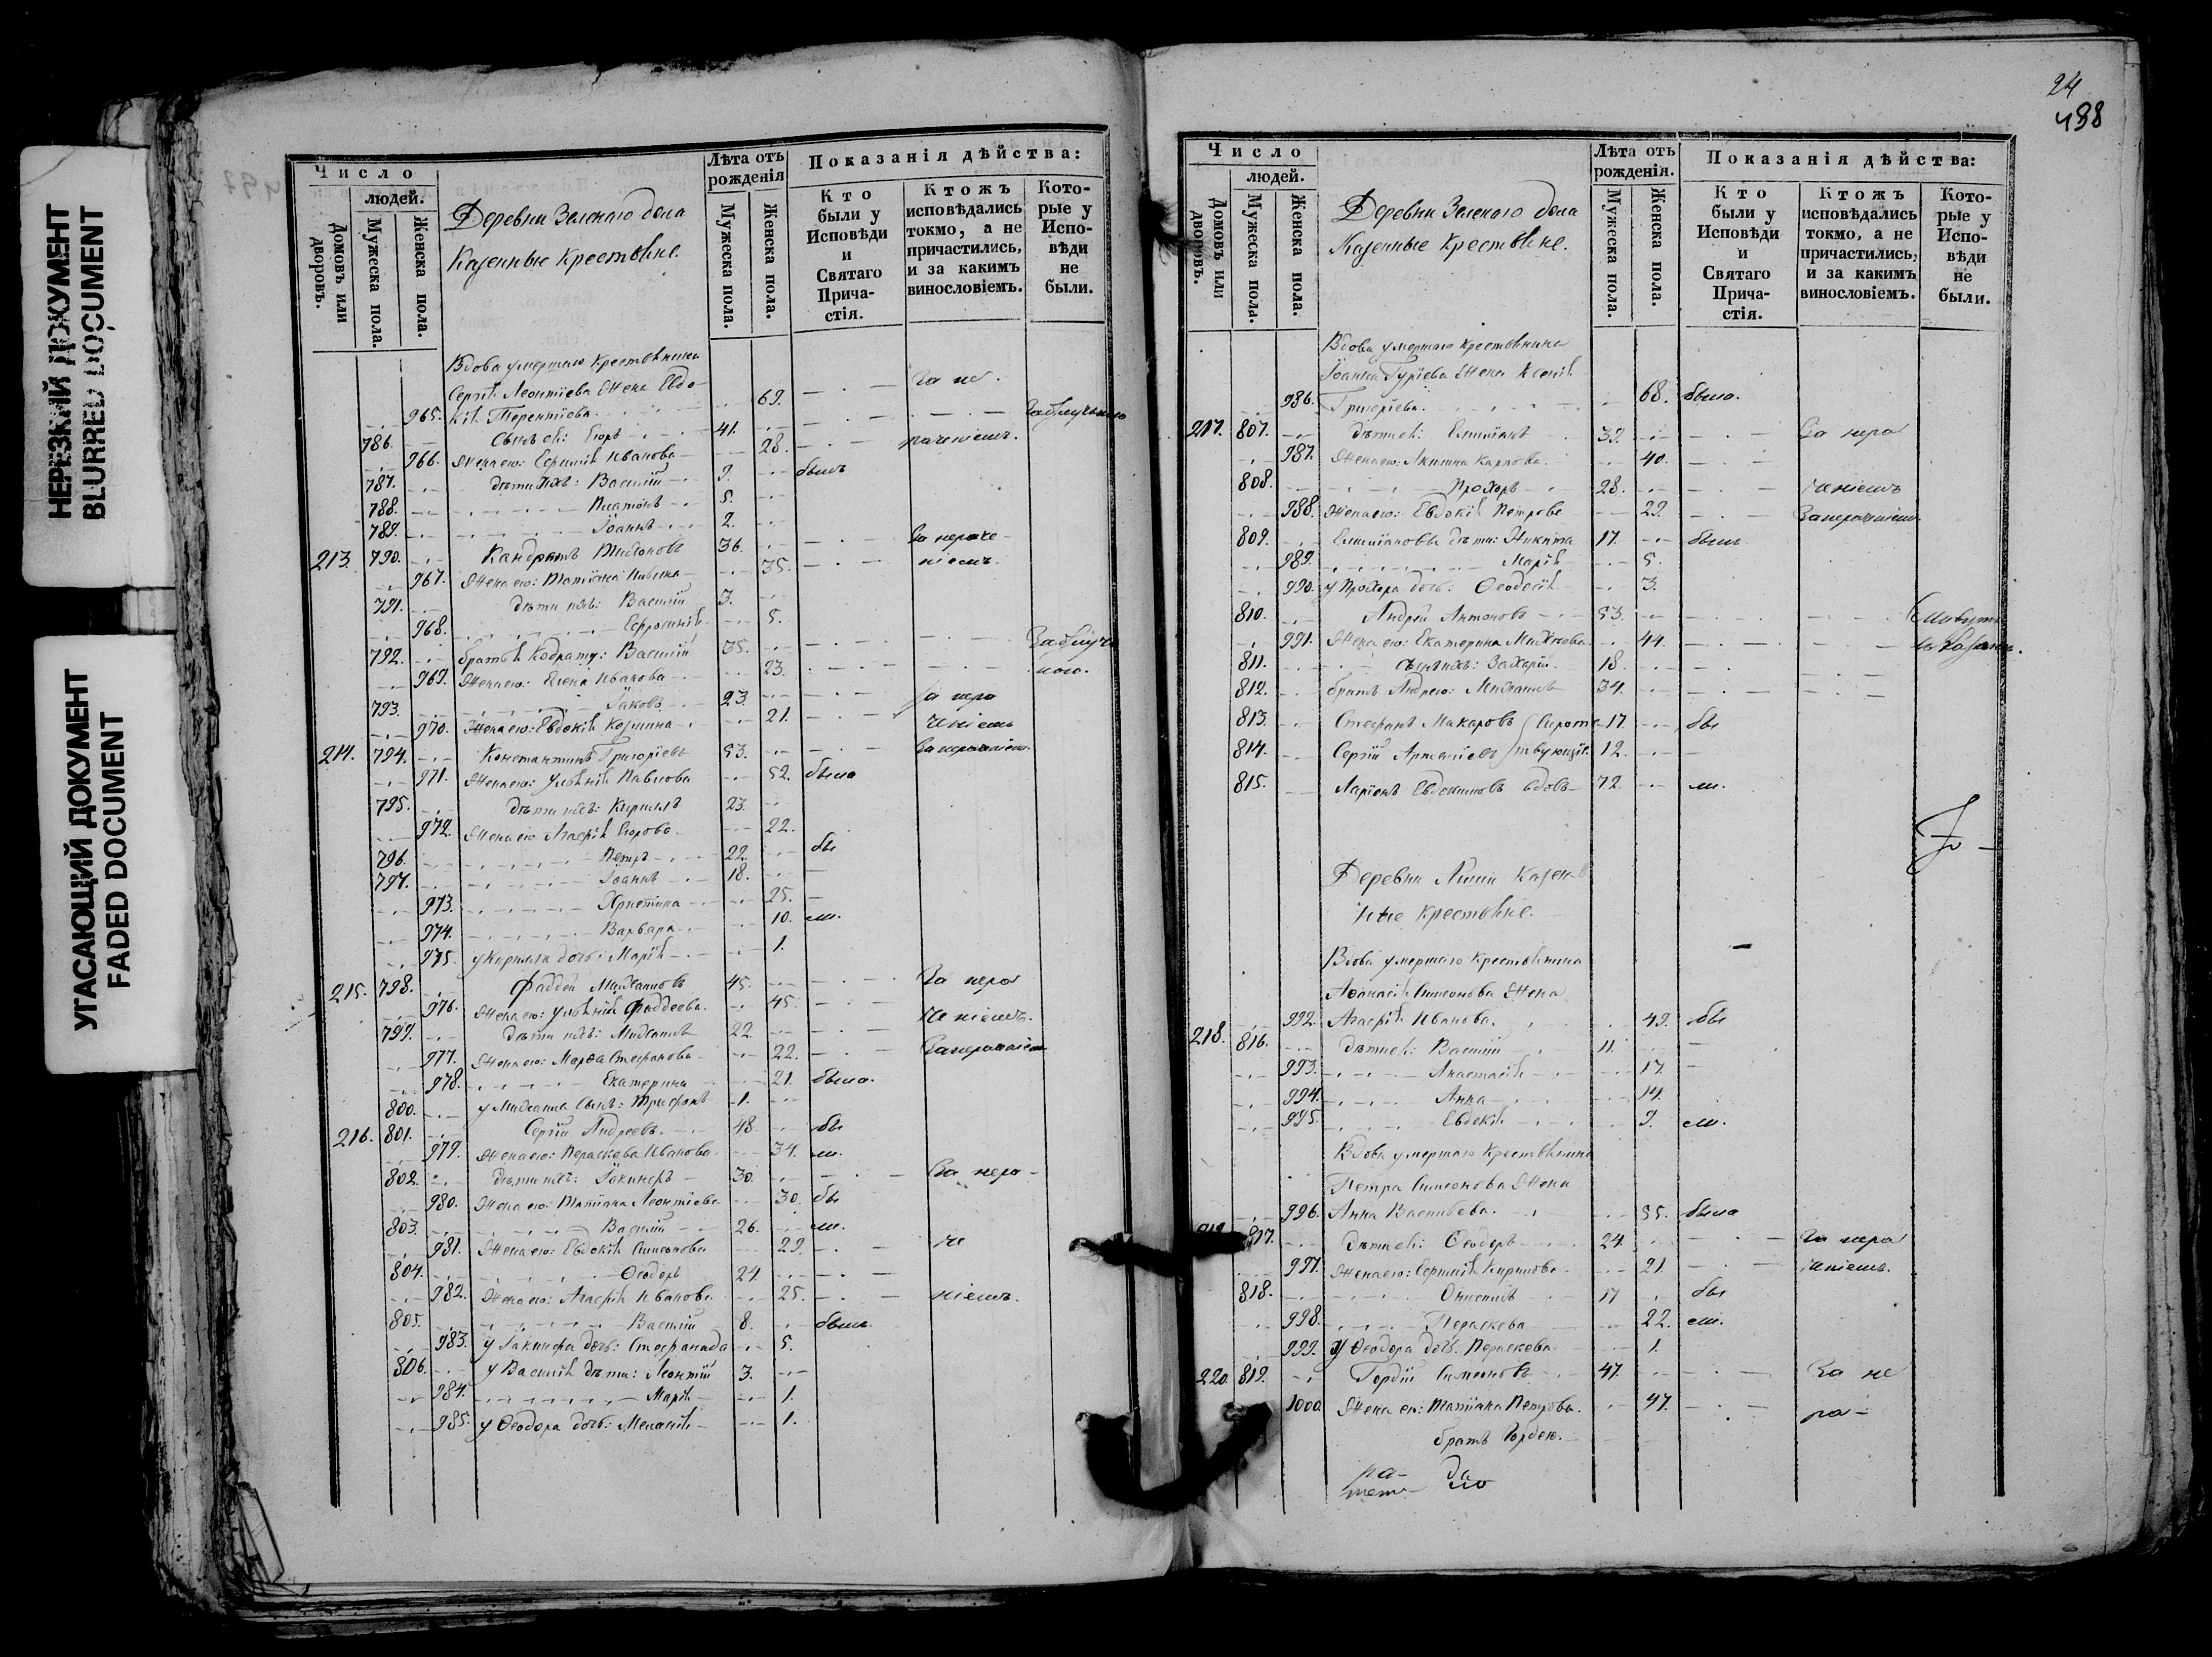 НЕРЕЗКИЙ ДОКУМЕНТ
BLURRED DOCUMENT
УГАСАЮЩИЙ ДОКУМЕНТ
FADED DOCUMENT
Число
людей.
Домовъ или дворовъ.
Мужеска пола.
Женска пола.
Деревни Зеленаго дола
Казенные крестьяне.
Лѣта отъ рожденія
Мужеска пола.
Женска пола.
Показанія дѣйства:
Кто были у Исповѣди и Святаго Причастія.
Ктожъ исповѣдались токмо, а не причастились, и за какимъ винословіемъ.
Которые у Исповѣди не были.
Вдова умершаго крестьянина
Сергія Леонтіева жена Евдо- За не
965. кія Терентіева 69.
786. Сынъ ея: Егоръ 41.
966. Жена его: Евфимія Иванова 28. раченіемъ.
787. Дѣти ихъ: Василій 9. былъ
788. Платонъ 5.
789. Іоаннъ 2.
213. 790. Кандратъ 36. За нераче-
967. Жена его: Татіана 35. ніемъ.
791. Дѣти ихъ: Василій 3.
968. Евфросинія 5.
792. братья Кодрату: Василій 35.
969. Жена его: Елена Иванова 23.
793. Іаковъ 23. За нера
970. Жена его: Евдокія Козмина 21. ченіемъ
214. 794. Константинъ Григоріевъ 53. За нераченіемъ.
971. Жена его: Уліянія Павлова 52. была
795. Дѣти ихъ: Кириллъ 23.
972. Жена его Агафія Егорова 22.
796. Петръ 22. бы
797. Іоаннъ 18.
973. Христина 25.
974. Варвара 10. ли.
975. у Кирилла дочь: Марія 1.
215. 798. Фаддей Михаиловъ 45. За нера
976. Жена его: Уліянія Фаддеева 45. ченіемъ.
799. Дѣти ихъ: Михаилъ 22.
977. Жена его: Марѳа Стефанова 22. За нераченіемъ
978. Екатерина 21. была.
800. у Михаила сынъ: Трифонъ 1.
216. 801. Сергій Андреевъ 48. бы
979. Жена его: Параскева Иванова 34. ли.
802. Дѣти ихъ: Іакинфъ 30. За нера-
980. Жена его: Татіана Леонтіева 30. бы
803. Василій 26. ли.
981. Жена его: Евдокія Симеонова 29. че
804. Ѳеодоръ 24.
982. Жена его: Агафія Иванова 25. ніемъ.
805. Василій 8. былъ.
983. у Іакинфа дочь: Стефанида 5.
806. у Василія дѣти: Леонтій 3.
984. Марія 1.
985. у Ѳеодора дочь: Меланія 1.
24
498
Число
людей.
Домовъ или дворовъ.
Мужеска пола.
Женска пола.
Деревни Зеленаго дола
Казенные крестьяне.
Лѣта отъ рожденія.
Мужеска пола.
Женска пола.
Показанія дѣйства:
Кто были у Исповѣди и Святаго Причастія.
Ктожъ исповѣдались токмо, а не причастились, и за какимъ винословіемъ.
Которые у Исповѣди не были.
Вдова умершаго крестьянина
Іоанна Гуріева жена Ксенія
986. Григоріева. 68. была.
217. 807. Дѣти ея: Емиліанъ 39. За нера
987. Жена его: Акилина Карпова. 40.
808. Прохоръ 28. ченіемъ
988. Жена его: Евдокія Петрова 29. За нераченіемъ
809. Емиліановы дѣти: Никита 17. былъ
989. Марія 5.
990. у Прохора дочь: Ѳеодосія 3.
810. Андрей Антоновъ 53. Живутъ
991. Жена его: Екатерина 44. въ Казани.
811. Сынъ ихъ: Захарій 18.
812. братъ Андрею: Михаилъ 34.
813. Стефанъ Макаровъ Сирот- 17. бы
814. Сергій Артеміевъ ствующіе 12.
815. Ларіонъ Евдокимовъ вдовъ 72. ли.
Деревни Казен-
ные крестьяне.
Вдова умершаго крестьянина
Аѳанасія Симеонова жена
992. Агафія Иванова. 49. бы
218. 816. Дѣти ея: Василій 11.
993. Анастасія 17.
994. Анна 14.
995. Евдокія 9. ли.
Вдова умершаго крестьянина
Петра Симеонова жена
996. Анна Васильева. 55. была
817. Дѣти ея: Ѳеодоръ 24. За нера
997. Жена его: Евфимія Кирилова 21. ченіемъ.
818. Онисимъ 17 бы
998. Параскева 22. ли.
999. у Ѳеодора дочь: Параскева 1.
220. 819. Гордій Симеоновъ 47. За не
1000. Жена его: Татіана Петрова. 47. ра-
братъ Гордею.